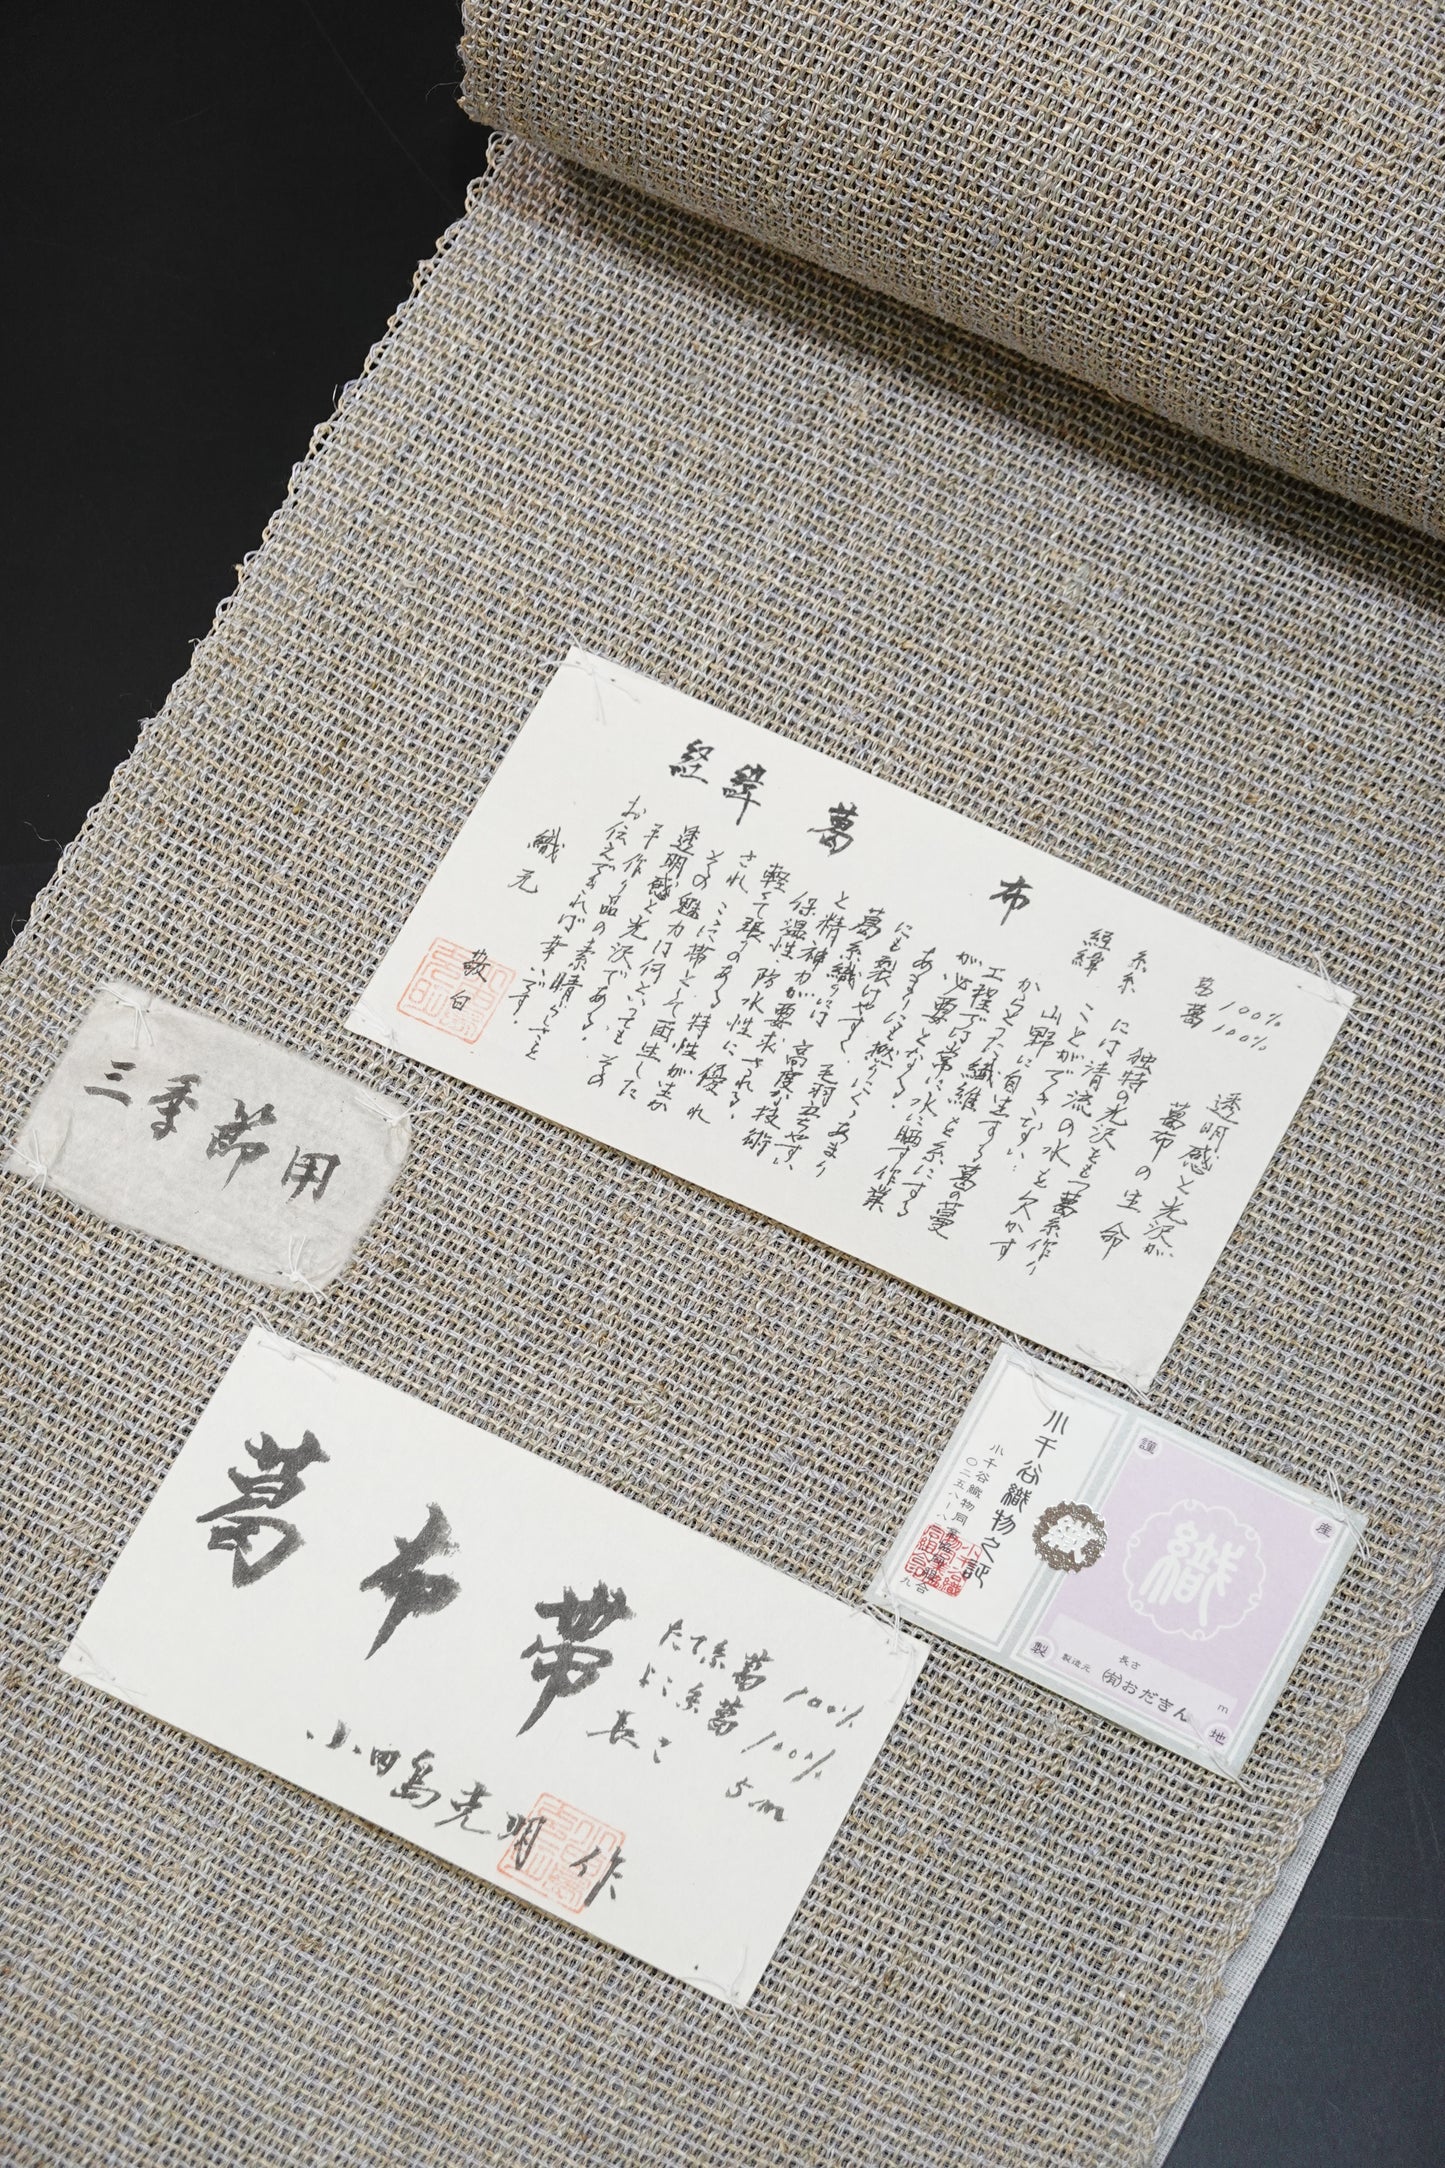 経緯葛布
経糸 葛100%
緯糸 葛100%
透明感と光沢が
葛布の生命
独特の光沢をもつ葛糸作り
には清流の水を欠かす
ことができない…
山野に自生する葛の蔓
からとった繊維を糸にする
工程では常に水に晒す作業
が必要となる。
あまりにも撚りにくくあまり
にも裂けやすく、毛羽立ちやすい
葛糸織りには高度な技術
と精神力が要求される。
保温性、防水性に優れ
軽くて張りのある特性が生か
され、ここに帯として再生した
その魅力は何といってもその
透明感と光沢である。
手作り品の素晴らしさを
お伝えできれば幸いです。
織元
敬白
三季節用
葛布帯
たて糸葛100%
よこ糸葛100%
長さ 5m
小田島克明作
小千谷織物之証
小千谷織物同業協同組合
謹
産
製
地
織
長さ
m
製造元
(有)おだきん